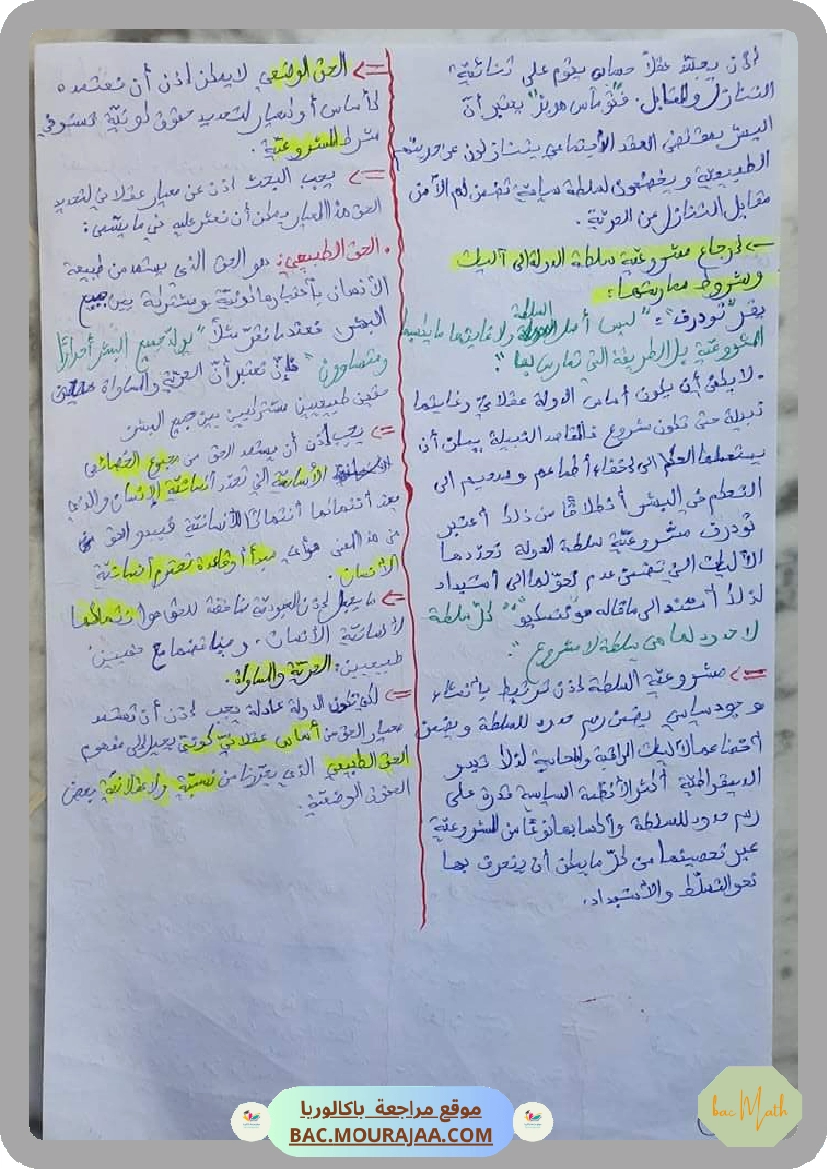 إذن يجعله عقلا حساب يقوم على ثنائية
التنازل والمقابل. فتوماس هوبز يعتبر أنّ
البشر بمقتضى العقد الاجتماعي يتنازلون عن حريتهم
الطبيعية ويخضعون لسلطة سياسية تضمن لهم الأمن
مقابل التنازل عن الحرية.
← إرجاع مشروعية سلطة الدولة الى آليات
وشروط ممارستها:
يقر "تودرف": "ليس أصل السلطة ولا غايتها ما يكسبها
المشروعية بل الطريقة التي تمارس بها".
• لا يكفي أن يكون أساس الدولة عقلاني وغايتها
نبيلة حتى تكون مشروع فالمقاصد النبيلة يمكن أن
يستعملها الحكّام الى إخفاء أطماعهم وسعيهم الى
التحكم في البشر أنطلاقا من ذلك أعتبر
تودرف مشروعية سلطة الدولة تحددها
الآليات التي تضمن عدم تحولها الى أستبداد
لذلك أستند الى ما قاله مونتسكيو "كل سلطة
لا حدود لها هي سلطة لا مشروع".
⇐ مشروعية السلطة إذن ترتبط بانشاء
وجود سياسي يضمن رسم حدود للسلطة ويضمن
أيضا عمل آليات المراقبة والمحاسبة لذلك تبدو
الديمقراطية أكثر الأنظمة السياسية قدرة على
رسم حدود للسلطة وأكسابها نوعا من المشروعية
عبر تحصينها من كل ما يمكن أن ينحرف بها
نحو التسلّط والأستبداد.
⇐ الحق الوضعي لا يمكن إذن أن نعتمده
كأساس أو كمعيار لتحديد حقوق كونية تستوفي
شرط المشروعية.
⇐ يجب البحث إذن عن معيار عقلاني لتحديد
الحق هذا المعيار يمكن أن نعثر عليه في ما يسمى:
• الحق الطبيعي: هو الحق الذي يستمد من طبيعة
الأنسان بأعتبارها كونية ومشتركة بين جميع
البشر. فعندما نقرّ مثلا "يولد جميع البشر أحرارًا
ومتساوون" فإنّنا نعتبر أنّ الحرية والمساواة
حقين طبيعيين مشتركين بين جميع البشر
⇐ يجب إذن أن يستمد الحق من مجموع الخصائص
الأساسية التي تحدّد أنسانية الإنسان والذي
يعدّ أنتماءنا أنتمائا للأنسانية فيبدو الحق
من هذا المعنى هو أي مبدأ أو قاعدة تحترم أنسانية
الأنسان.
⇐ ما يجعل إذن العبودية مناقضة للحق هو انتهاكها
لأنسانية الأنسان. ومناقضتها مع حقيين
طبيعيين: الحرية والمساواة.
⇐ لكي تكون الدولة عادلة يجب إذن أن تعتمد
معيار الحق من أساس عقلاني كوني يحيل إلى مفهوم
الحق الطبيعي الذي يحررنا من نسبية ولاعقلانية بعض
الحقوق الوضعية.
موقع مراجعة باكالوريا
BAC.MOURAJAA.COM
bac Math